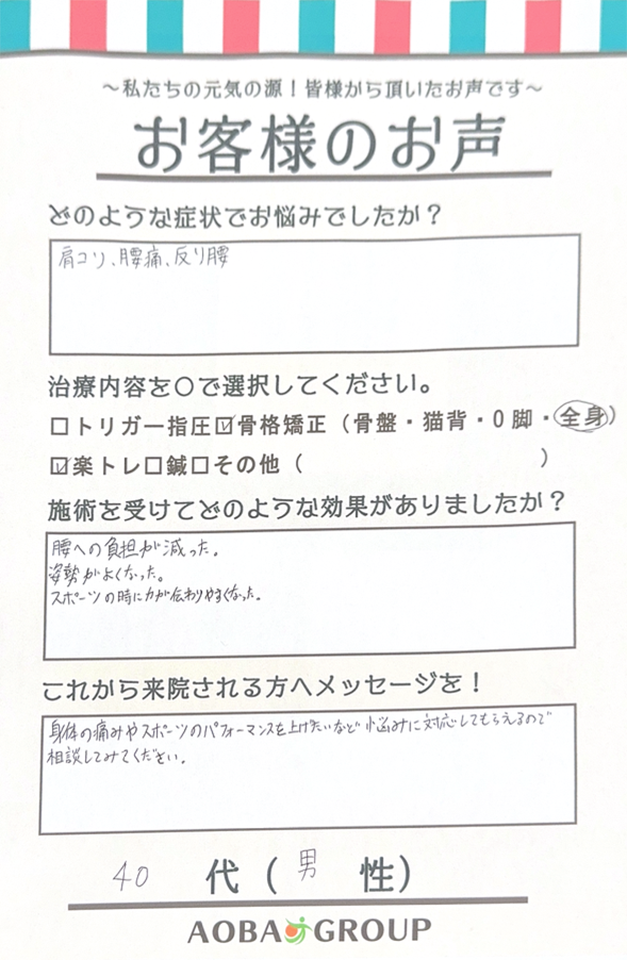 ～私たちの元気の源！皆様から頂いたお声です～
お客様のお声
どのような症状でお悩みでしたか？
肩コリ、腰痛、反り腰
治療内容を〇で選択してください。
□トリガー指圧☑骨格矯正（骨盤・猫背・O脚・全身）
☑楽トレ□鍼□その他（　　　　　　　　　　）
施術を受けてどのような効果がありましたか？
腰への負担が減った。
姿勢がよくなった。
スポーツの時に力が伝わりやすくなった。
これから来院される方へメッセージを！
身体の痛みやスポーツのパフォーマンスを上げたいなど お悩みに対応してもらえるので
相談してみてください。
40 代（男 性）
AOBA GROUP